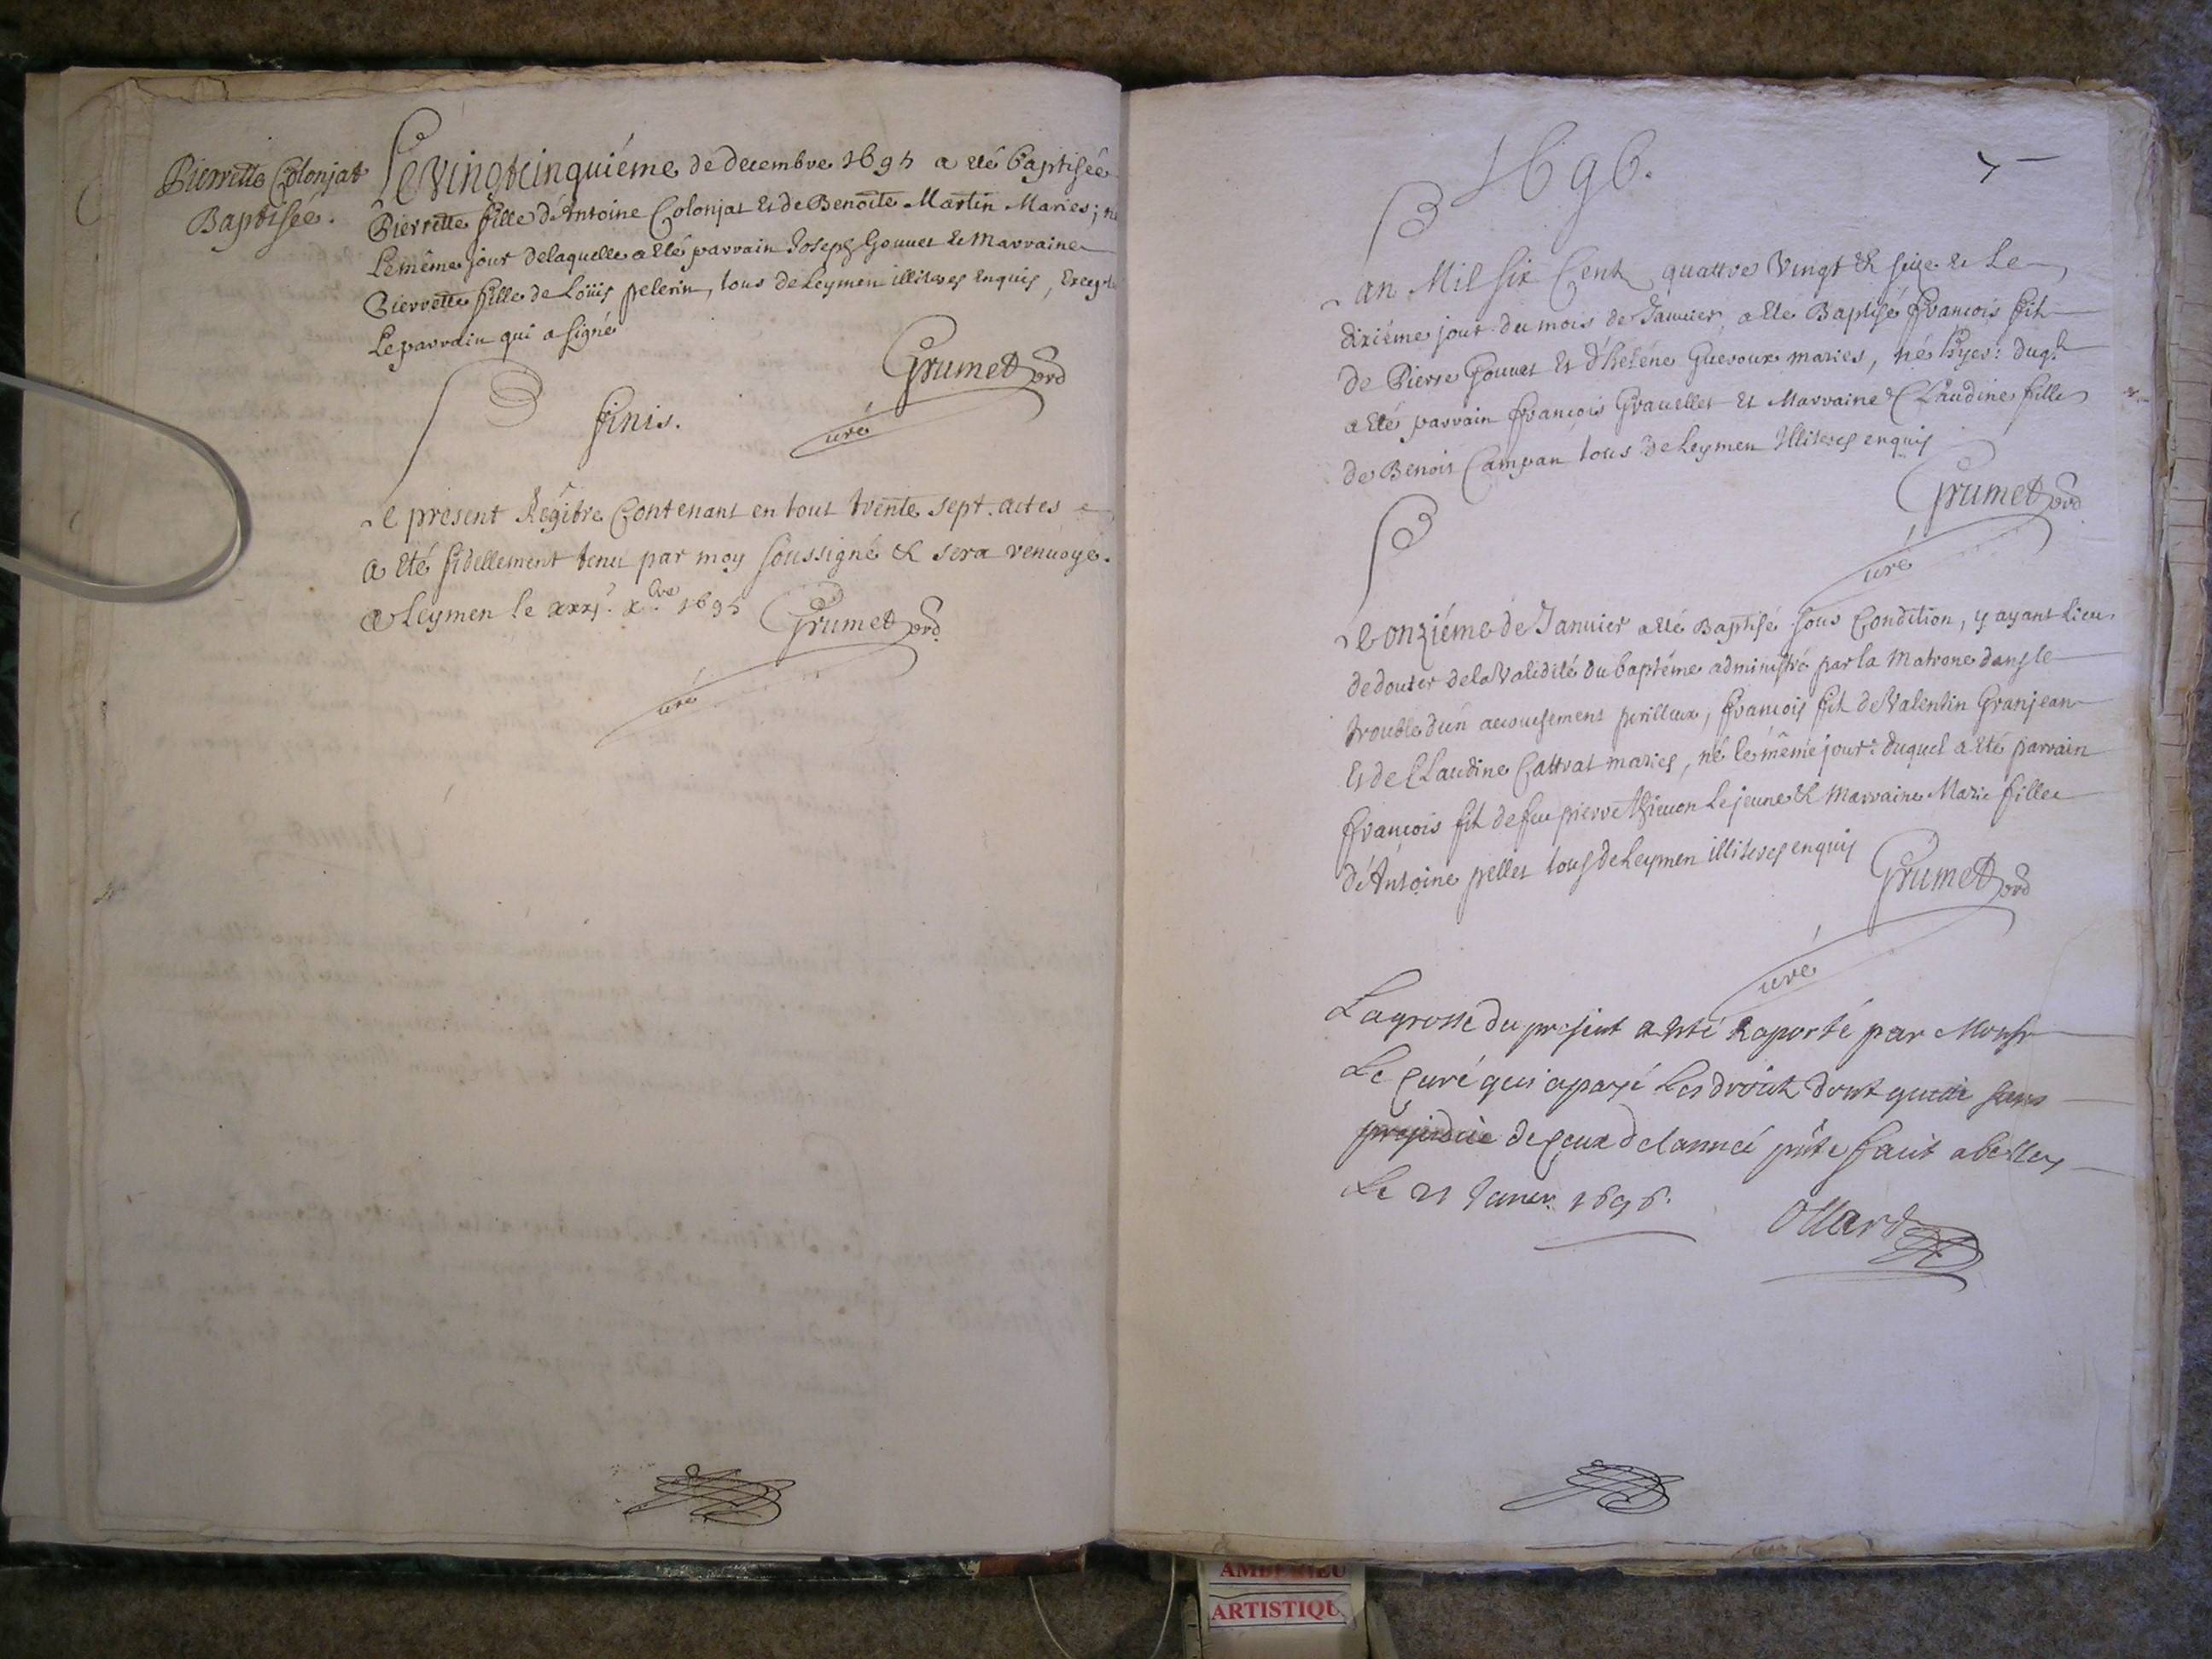 Pierrette Colonjat
Baptisée.
Le vingtcinquiéme de decembre 1695 a eté baptisée
Pierrette fille d'Antoine Colonjat et de Benoîte Martin Maries; né
Le même jour de laquelle a eté parrain Joseph Gouuet et Marraine
Pierrette fille de Loüis pelerin, tous de Leymen illiteres enquis, Excepté
Le parrain qui a signé
Grumet
curé
finis.
Le present Regître Contenant en tout trente sept. actes
a eté fidellement tenu par moy soussigné & sera renuoyé.
a Leymen le xxxj.e xbre 1695
Grumet
curé
1696.
Lan Mil six Cent quattre vingt & seize et Le
dixiéme jour du mois de Januier, a eté Baptisé françois fils
de Pierre Gouuet et d'heléne Gueroux maries, né hyer: duql
a eté parrain françois Grauellet et Marraine Claudine fille
de Benoit Campan tous de Leymen Illiteres enquis
Grumet
curé
Le onziéme de Januier a eté Baptisé sous Condition, y ayant Lieu
de douter de la validité du baptéme administré par la Matrone dans le
trouble d'un acouchement perilleux, françois fils de Valentin Granjean
et de Claudine Cattrat maries, né le même jour: duquel a eté parrain
françois fils de feu pierre Thieuon Le jeune & Marraine Marie fille
d'Antoine pellet tous de Leymen illiteres enquis
Grumet
curé
La grosse du present a esté Raporté par Monsr
Le Curé qui a payé Les droits dont quitte sans
prejudice de Ceux de lannée pñte fait a belley
Le 21 Janer. 1696.
Ollard